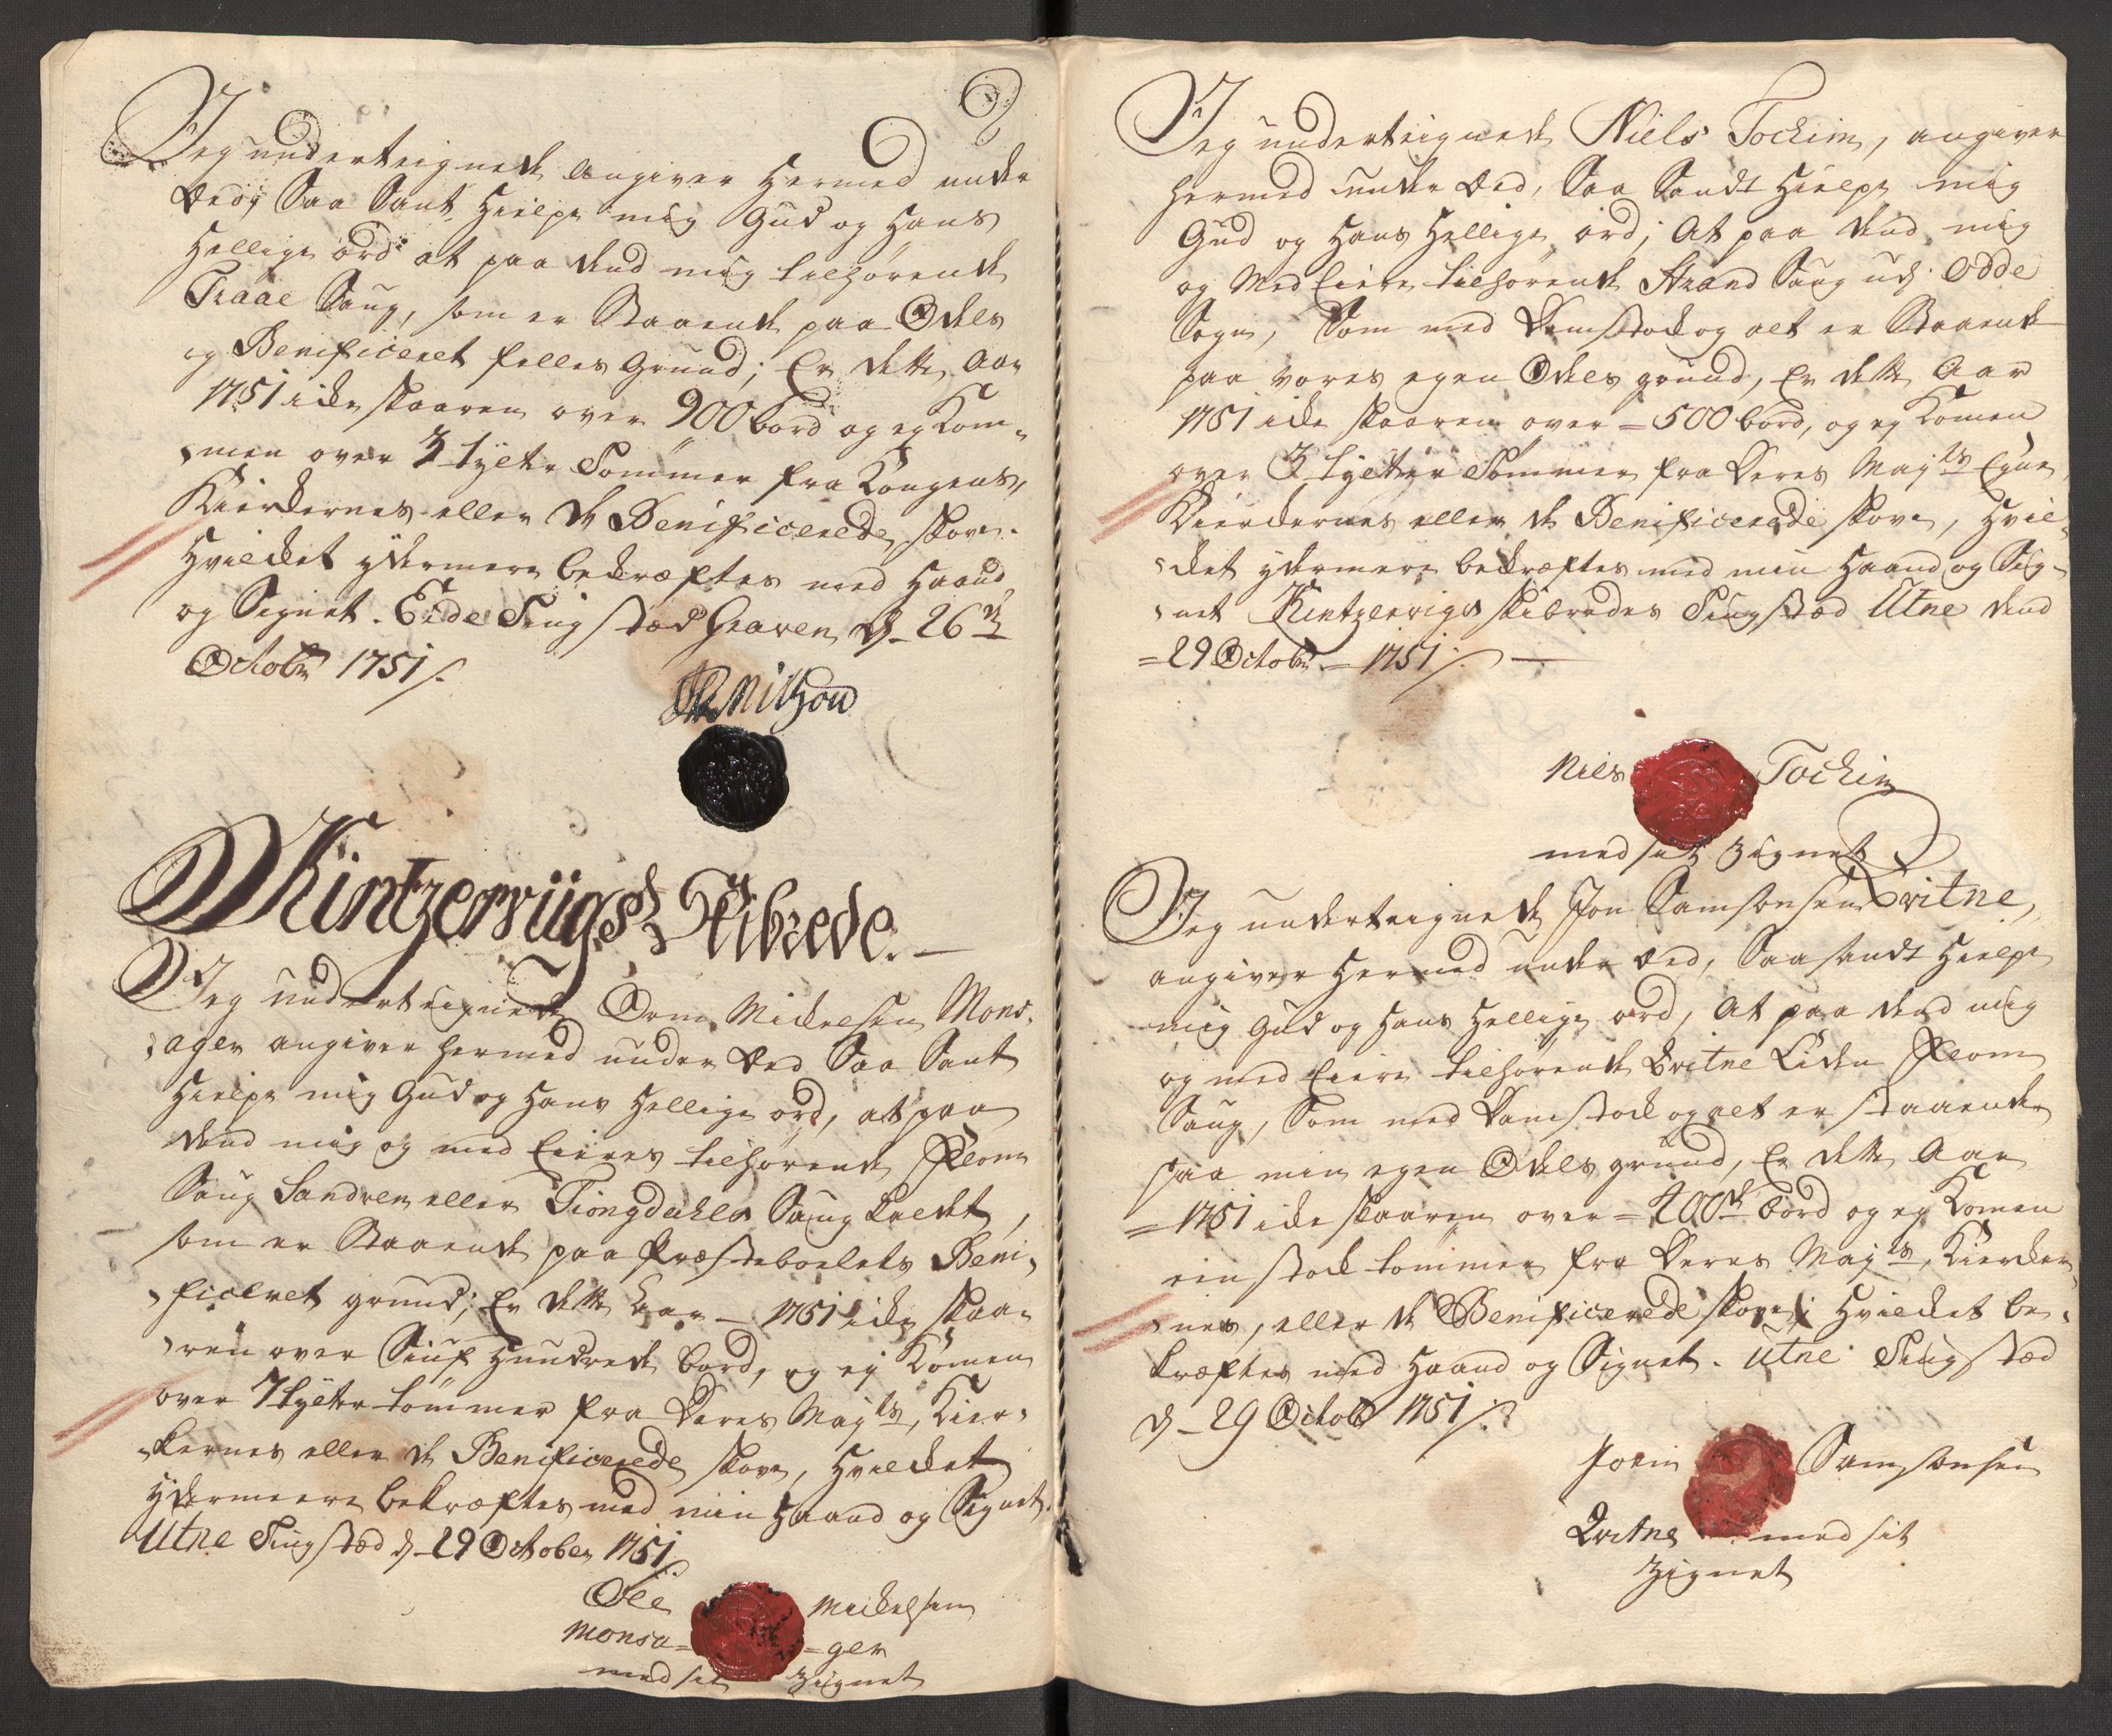 Jeg underteignede angiver hermed under
Eed, Saa Sant hielpe mig Gud og Hans
Hellige ord at paa dend mig tilhørende
Traae Saug, som er Staaende paa Odels
og Benificeret felles Grund; Er dette Aar
1751 icke skaaren over 900 bord og ej Kom-
men over 3 tylter Tømmer fra Kongens,
Kierckernes eller de Benificerede skove.
Hvilcket ydermere bekræftes med Haand
og Signet. Eide Tingstæd Graven d. 26de
Octobr 1751
Nilson
Kintzerviigs Skibrede.
Jeg underteignede Orm Mickelsen Mons-
ager angiver hermed under Eed Saa Sant
Hielpe mig Gud og Hans Hellige ord, at paa
dend mig og med Eieres tilhørende Flom
Saug Sandven eller Tiongdahls Saug kaldet,
som er Staaende paa Præsteboelets Beni-
ficeret grund; Er dette Aar 1751 icke skaa-
ren over Siuf Hundrede bord, og ej Komen
over 7 tylter tømmer fra Deres Mayts, Kier-
kernes eller de Benificerede skove, Hvilcket
ydermeere bekræftes med min Haand og Signet.
Utne Tingstæd d. 29 October 1751
Ole Mickelsen
Monsa- -ger
med sit Zignet
Jeg underteignede Niels Tockim, angiver
hermed under Eed, Saa Sandt Hielpe mig
Gud og Hans Hellige ord; At paa dend mig
og Med Eiere tilhørende Strand Saug udj Odde
Sogn, Som med Damstock og alt er Staaende
paa vores egen Odels grund, Er dette Aar
1751 icke skaaren over 500 bord, og ej Komen
over 3 tylter Tømmer fra Deres Mayts Egne,
Kierckernes eller de Benificerede skove, Hvil-
cket ydermere bekræftes med min Haand og Sig-
net Kintzervigs skibredes Tingstæd Utne dend
29 Octobr 1751
Niels Tockim
med sit Zignet
Jeg underteignede Jon Samsonsen Qvitne,
angiver Hermed under Eed, Saa sandt Hielpe
mig Gud og Hans Hellige ord, At paa dend mig
og med Eiere tilhørende Qvitne Liden Flom
Saug, Som med Damstock og alt er staaende
paa min egen Odels grund, Er dette Aar
1751 icke skaaren over 400de bord og ej Komen
ein stock tømmer fra Deres Mayts, Kiercker-
nes, eller de Benificerede skove; Hvilcket be-
kræftes med Haand og Signet. Utne Tingstæd
d. 29 Octobr 1751
Joen Samsonsen
Qvitne med sit
Zignet